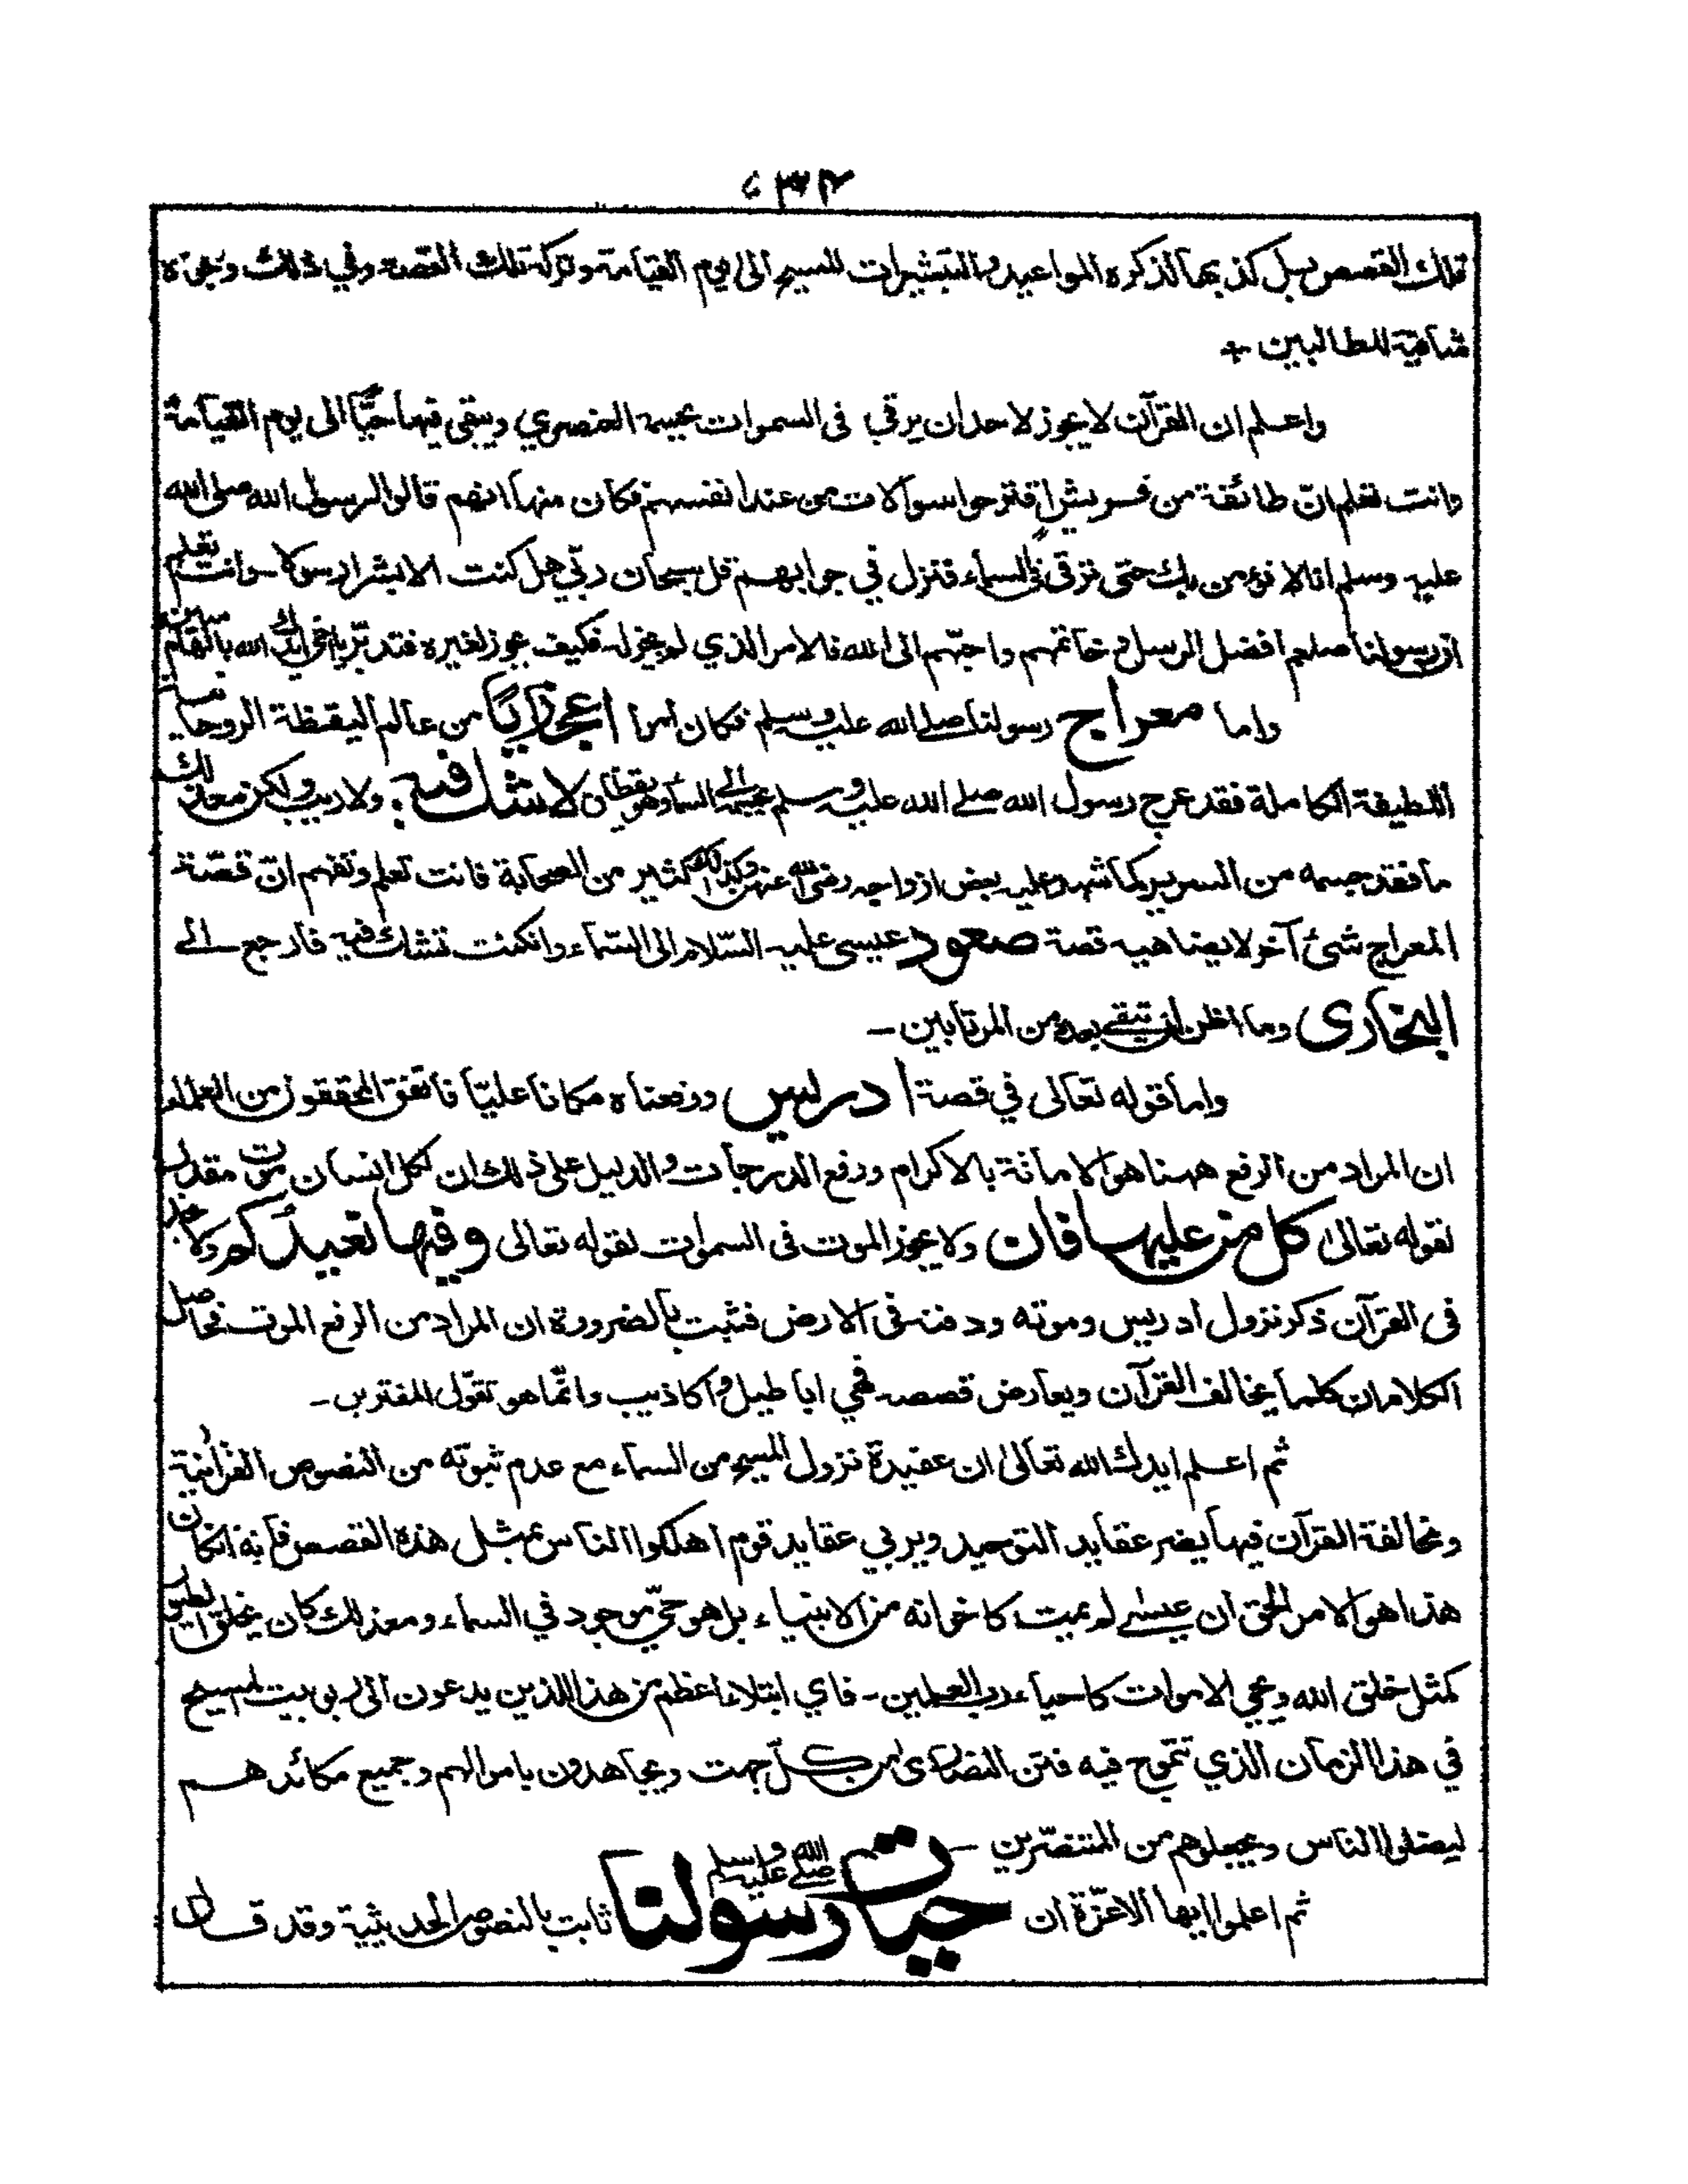 تلك القصص بل كذبها لذكره المواعيد والتبشيرات للمسيح الى يوم القيامة وتركه تلك القصة وفي ذلك وجوه
شافية للطالبين +
واعلم ان القرآن لا يجوز لاحد ان يرقي فى السموات بجسمه العنصري ويبقى فيها حيًّا الى يوم القيامة
وانت تعلم انّ طائفة من قريش اقترحوا سوالات من عند انفسهم فكان منها انهم قالوا لرسول الله صلى الله
عليه وسلم انا لا نؤمن بك حتى ترقى فى السماء فنزل في جوابهم قل سبحان ربّي هل كنت الا بشرا رسولا ـ وانت تعلم
ان رسولنا صلعم افضل الرسل و خاتمهم واحبّهم الى الله فالامر الذي لم يجز له فكيف يجوز لغيره فتدبّر يا اخي ايدك الله بالهام
واما معراج رسولنا صلے الله عليه وسلم فكان امرا اعجازيًّا من عالم اليقظة الروحانية
اللطيفة الكاملة فقد عرج رسول الله صلے الله عليه وسلم بجسمه الے السماء وهو يقظان لا شك فيه ولا ريب ولكن مع ذلك
ما فقد جسمه من السرير كما شهد عليه بعض ازواجه رضى الله عنهن وكذلك كثير من الصحابة فانت تعلم وتفهم انّ قصّة
المعراج شىء آخر لا يضاهيه قصة صعود عيسى عليه السّلام الى السّماء وان كنت تشك فيه فارجع الے
البخارى وما اظن ان تبقے بعده من المرتابين ـ
واما قوله تعالى في قصة ادريس ورفعناه مكانا عليّا فاتفق المحققون من العلماء
ان المراد من الرفع ههنا هو الاماتة بالاكرام ورفع الدرجات والدليل على ذلك ان لكل انسان موت مقدر
لقوله تعالىٰ كل من عليها فان ولا يجوز الموت فى السموات لقوله تعالى وفيها نعيدكم ولا نجد
فى القرآن ذكر نزول ادريس وموته ودفنه فى الارض فثبت بالضرورة ان المراد من الرفع الموت فحاصل
الكلام ان كلما يخالف القرآن ويعارض قصصه فهي اباطيل واكاذيب وانّما هو تقوّل المفترين ـ
ثم اعلم ايدك الله تعالىٰ ان عقيدة نزول المسيح من السماء مع عدم ثبوته من النصوص القراٰنية
ومخالفة القرآن فيها يضر عقايد التوحيد ويربي عقايد قوم اهلكوا الناس بمثل هذه القصص فانه ان كان
هذا هو الامر الحق ان عيسٰے لم يمت كاخوانه من الانبياء بل هو حيّ موجود في السماء ومع ذلك كان يخلق الطيور
كمثل خلق الله ويحي الاموات كاحياء رب العلمين ـ فاي ابتلاء اعظم من هذا للذين يدعون الى ربوبيت المسيح
في هذا الزمان الذي تتموج فيه فتن النصارٰى من كلّ جهت ويجاهدون باموالهم وجميع مكائدهم
ليضلوا الناس ويجعلوهم من المتنصّرين ـ
ثم اعلموا ايها الاعزّة ان حيات رسولنا صلے الله عليه وسلم ثابت بالنصوص الحديثية وقد قال